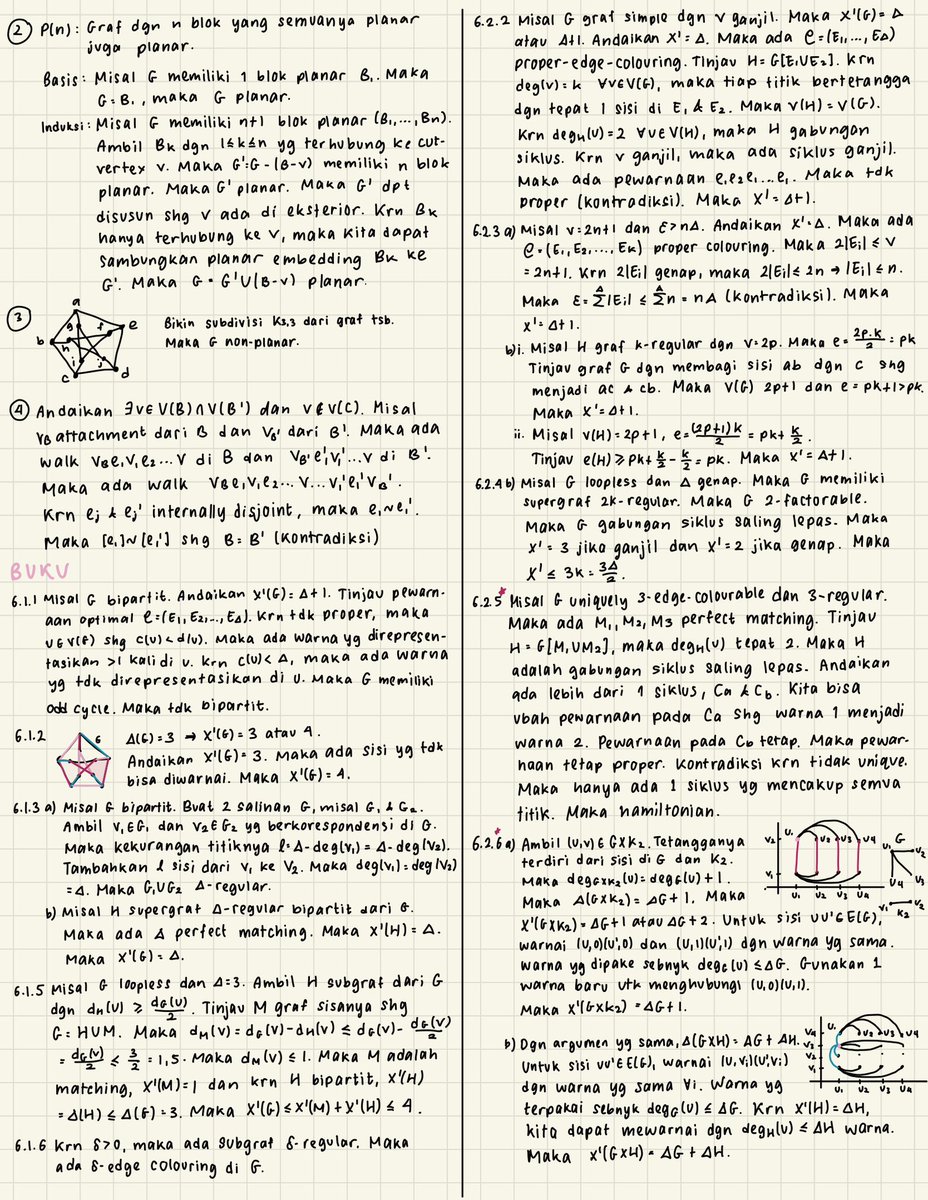 ② P(n): Graf dgn n blok yang semuanya planar
juga planar.
Basis: Misal G memiliki 1 blok planar B₁. Maka
G=B₁, maka G planar.
Induksi: Misal G memiliki n+1 blok planar (B₁,...,Bn).
Ambil Bₖ dgn 1≤k≤n yg terhubung ke cut-
vertex v. Maka G'=G-(B-v) memiliki n blok
planar. Maka G' planar. Maka G' dpt
disusun shg v ada di eksterior. Krn Bₖ
hanya terhubung ke v, maka kita dapat
sambungkan planar embedding Bₖ ke
G'. Maka G = G'∪(B-v) planar.
③ a b c d e f g h i j
Bikin subdivisi K₃,₃ dari graf tsb.
Maka G non-planar.
④ Andaikan ∃v∈V(B)∩V(B') dan v∉V(C). Misal
v_B attachment dari B dan v_B' dari B'. Maka ada
walk v_B e₁v₁e₂...v di B dan v_B' e₁'v₁'...v di B'.
Maka ada walk v_B e₁v₁e₂...v...v₁'e₁'v_B'.
Krn ej & ej' internally disjoint, maka e₁~e₁'.
Maka [e₁]~[e₁'] shg B=B' (kontradiksi)
BUKU
6.1.1 Misal G bipartit. Andaikan X'(G)=Δ+1. Tinjau pewarn-
aan optimal C=(E₁,E₂,...,EΔ). Krn tdk proper, maka
v∈V(F) shg c(v)<d(v). Maka ada warna yg direpresen-
tasikan >1 kali di v. Krn c(v)<Δ, maka ada warna
yg tdk direpresentasikan di v. Maka G memiliki
odd cycle. Maka tdk bipartit.
6.1.2 G
Δ(G)=3 → X'(G)=3 atau 4.
Andaikan X'(G)=3. Maka ada sisi yg tdk
bisa diwarnai. Maka X'(G)=4.
6.1.3 a) Misal G bipartit. Buat 2 salinan G, misal G₁ & G₂.
Ambil v₁∈G₁ dan v₂∈G₂ yg berkorespondensi di G.
Maka kekurangan titiknya l=Δ-deg(v₁)=Δ-deg(v₂).
Tambahkan l sisi dari v₁ ke v₂. Maka deg(v₁)=deg(v₂)
=Δ. Maka G₁∪G₂ Δ-regular.
b) Misal H supergraf Δ-regular bipartit dari G.
Maka ada Δ perfect matching. Maka X'(H)=Δ.
Maka X'(G)=Δ.
6.1.5 Misal G loopless dan Δ=3. Ambil H subgraf dari G
dgn d_H(v) ≥ d_G(v)/2. Tinjau M graf sisanya shg
G=H∪M. Maka d_M(v)=d_G(v)-d_H(v) ≤ d_G(v)-d_G(v)/2
= d_G(v)/2 ≤ 3/2 = 1,5. Maka d_M(v) ≤ 1. Maka M adalah
matching, X'(M)=1 dan krn H bipartit, X'(H)
=Δ(H) ≤ Δ(G)=3. Maka X'(G) ≤ X'(M)+X'(H) ≤ 4.
6.1.6 Krn δ>0, maka ada subgraf δ-regular. Maka
ada δ-edge colouring di G.
6.2.2 Misal G graf simple dgn v ganjil. Maka X'(G)=Δ
atau Δ+1. Andaikan X'=Δ. Maka ada C=(E₁,...,EΔ)
proper-edge-colouring. Tinjau H=G[E₁∪E₂]. Krn
deg(v)=k ∀v∈V(G), maka tiap titik bertetangga
dgn tepat 1 sisi di E₁ & E₂. Maka V(H)=V(G).
Krn deg_H(v)=2 ∀v∈V(H), maka H gabungan
siklus. Krn v ganjil, maka ada siklus ganjil.
Maka ada pewarnaan e₁e₂e₁...e₁. Maka tdk
proper (kontradiksi). Maka X'=Δ+1.
6.2.3 a) Misal v=2n+1 dan ε>nΔ. Andaikan X'=Δ. Maka ada
C=(E₁,E₂,...,Eₖ) proper colouring. Maka 2|Ei| ≤ v
=2n+1. Krn 2|Ei| genap, maka 2|Ei| ≤ 2n → |Ei| ≤ n.
Maka ε=Σ^Δ|Ei| ≤ Σ^Δ n = nΔ (kontradiksi). Maka
X'=Δ+1.
b) i. Misal H graf k-regular dgn v=2p. Maka e=2p.k/2=pk
Tinjau graf G dgn membagi sisi ab dgn c shg
menjadi ac & cb. Maka V(G) 2p+1 dan e=pk+1>pk.
Maka X'=Δ+1.
ii. Misal v(H)=2p+1, e=(2p+1)k/2 = pk+k/2.
Tinjau e(H) ≥ pk+k/2-k/2=pk. Maka X'=Δ+1.
6.2.4 b) Misal G loopless dan Δ genap. Maka G memiliki
supergraf 2k-regular. Maka G 2-factorable.
Maka G gabungan siklus saling lepas. Maka
X'=3 jika ganjil dan X'=2 jika genap. Maka
X' ≤ 3k = 3Δ/2.
6.2.5* Misal G uniquely 3-edge-colourable dan 3-regular.
Maka ada M₁, M₂, M₃ perfect matching. Tinjau
H=G[M₁∪M₂], maka deg_H(v) tepat 2. Maka H
adalah gabungan siklus saling lepas. Andaikan
ada lebih dari 1 siklus, Ca & Cb. Kita bisa
ubah pewarnaan pada Ca shg warna 1 menjadi
warna 2. Pewarnaan pada Cb tetap. Maka pewar-
naan tetap proper. Kontradiksi krn tidak unique.
Maka hanya ada 1 siklus yg mencakup semua
titik. Maka hamiltonian.
6.2.6* a) Ambil (u,v)∈G×K₂. Tetangganya
terdiri dari sisi di G dan K₂.
Maka deg_G×K₂(u)=deg_G(u)+1.
Maka Δ(G×K₂)=ΔG+1. Maka
X'(G×K₂)=ΔG+1 atau ΔG+2. Untuk sisi uu'∈E(G),
warnai (u,0)(u',0) dan (u,1)(u',1) dgn warna yg sama.
Warna yg dipake sebnyk deg_G(u) ≤ ΔG. Gunakan 1
warna baru utk menghubungi (u,0)(u,1).
Maka X'(G×K₂)=ΔG+1.
b) Dgn argumen yg sama, Δ(G×H)=ΔG+ΔH.
Untuk sisi uu'∈E(G), warnai (u,vi)(u',vi)
dgn warna yg sama ∀i. Warna yg
terpakai sebnyk deg_G(u) ≤ ΔG. Krn X'(H)=ΔH,
kita dapat mewarnai dgn deg_H(u) ≤ ΔH warna.
Maka X'(G×H)=ΔG+ΔH.